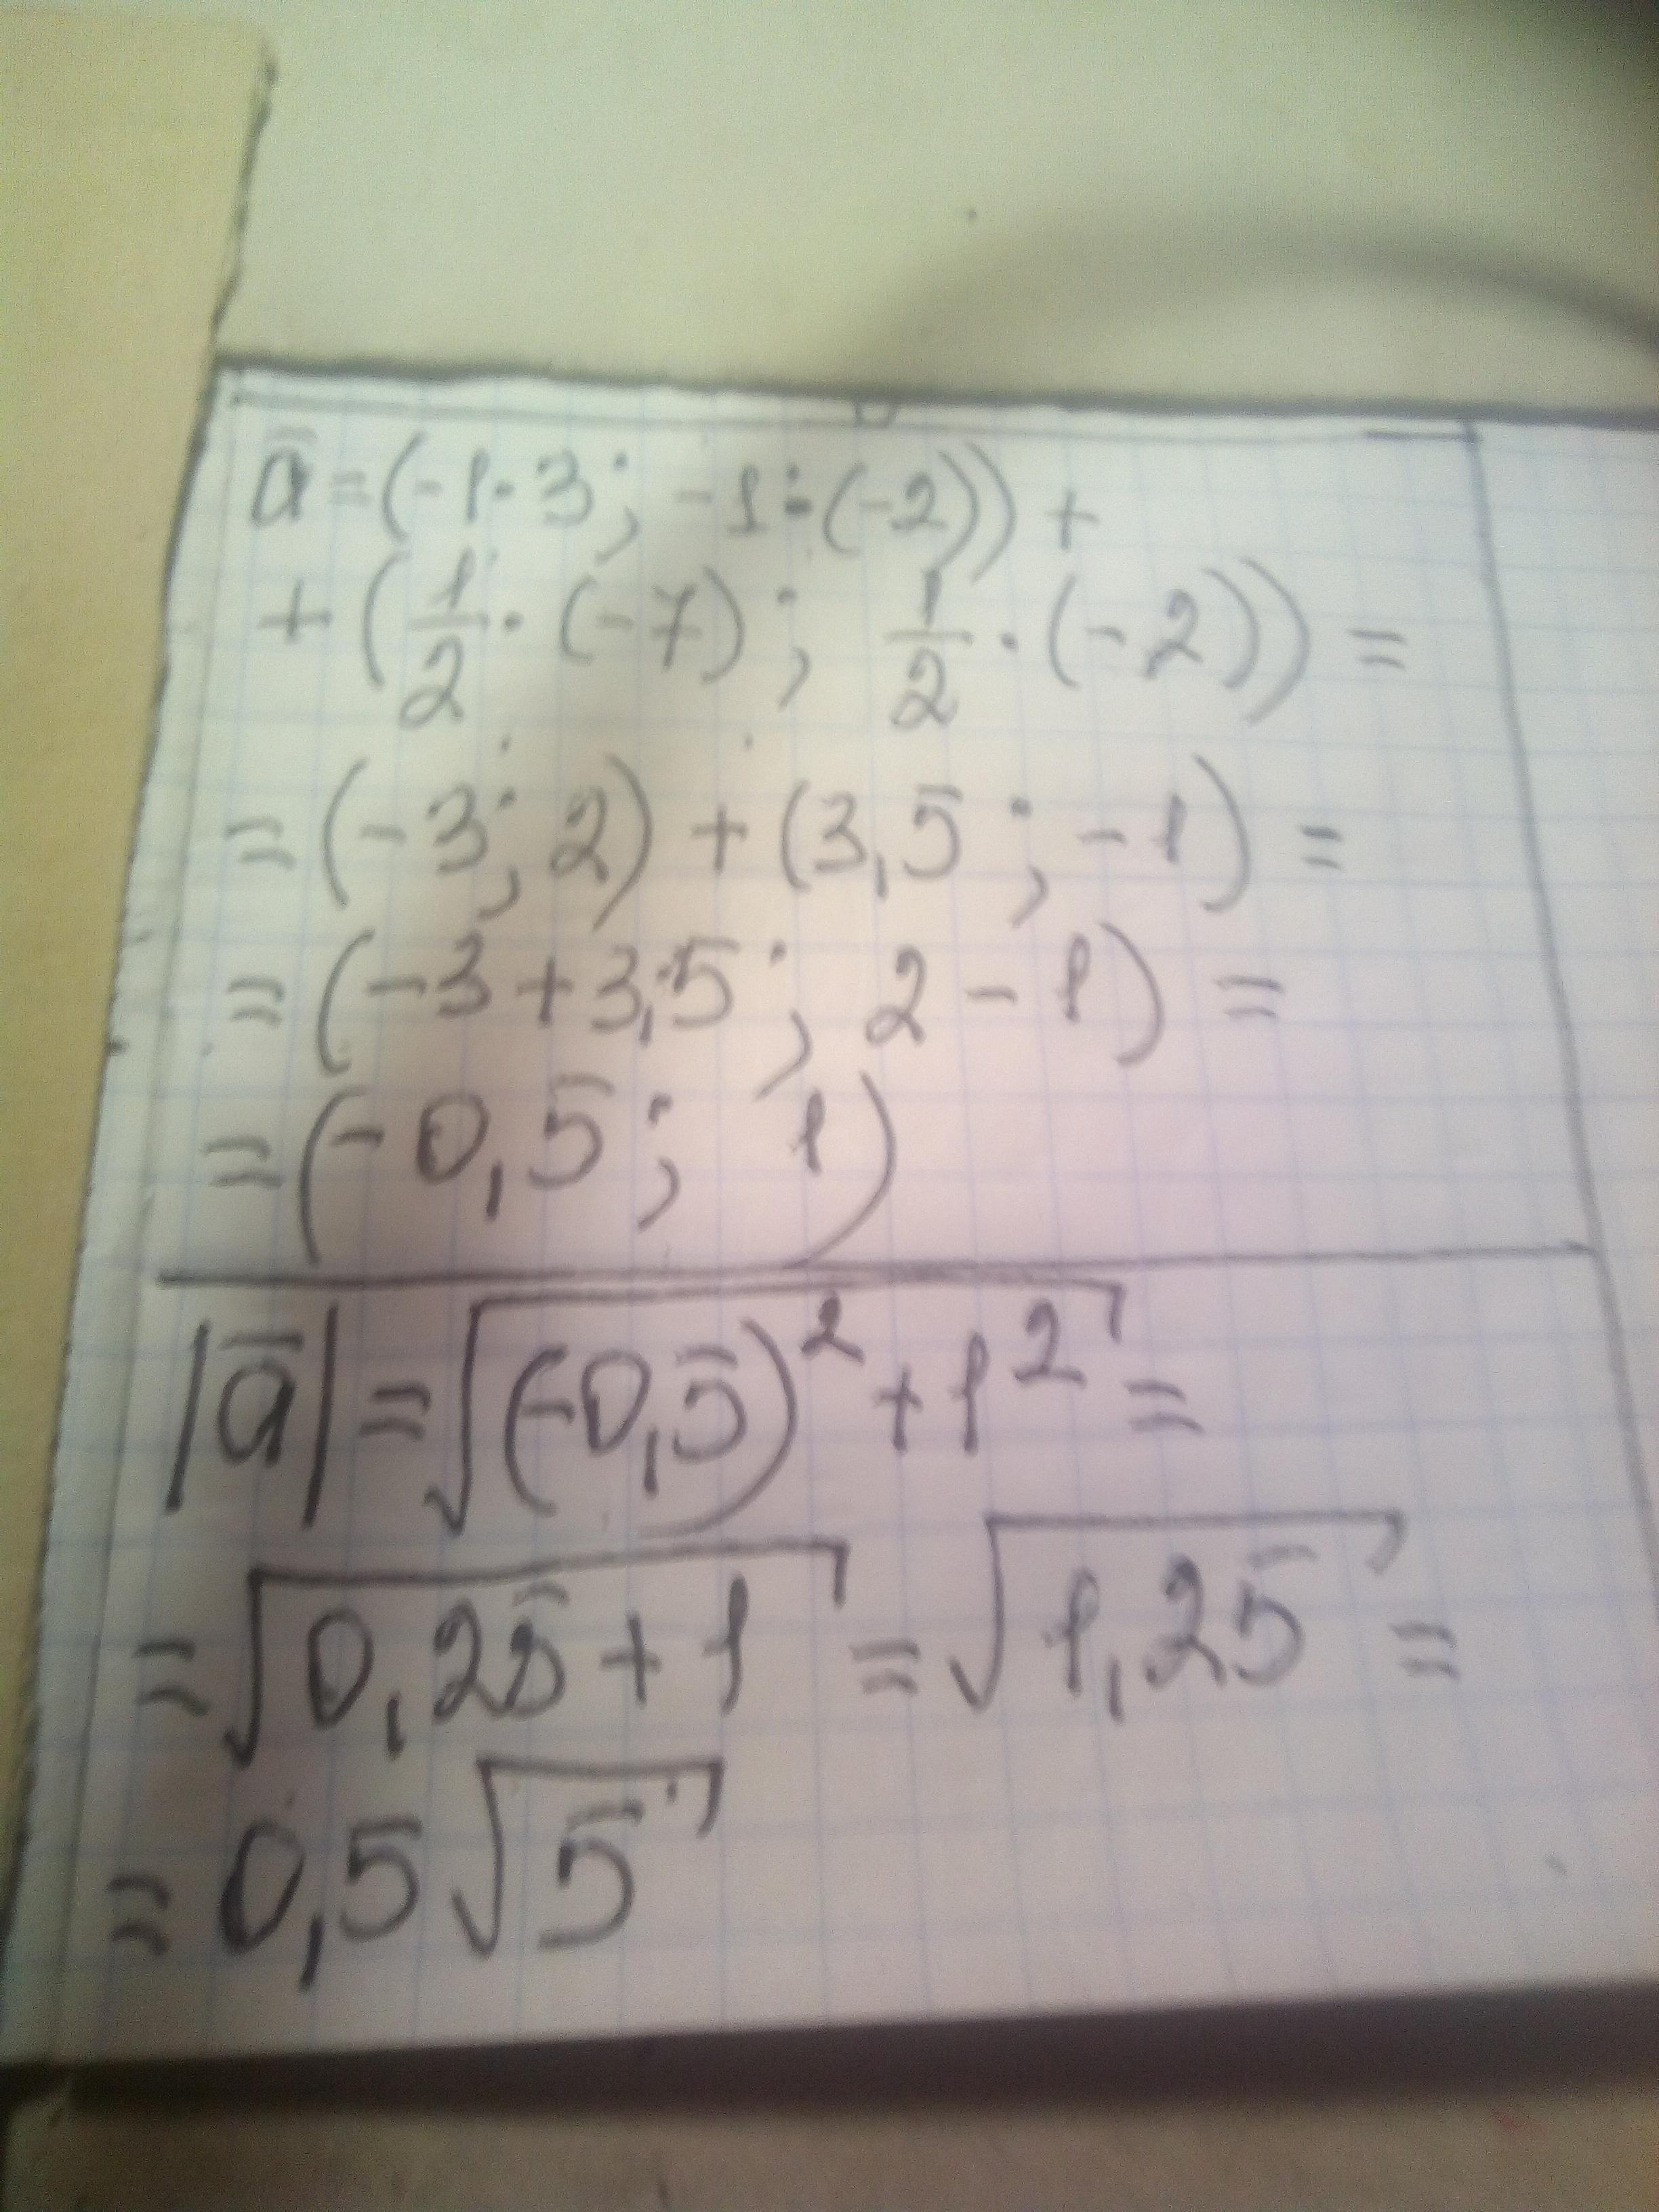 ā = (-1·3; -1·(-2)) +
+ (1/2 · (-7); 1/2 · (-2)) =
= (-3; 2) + (3,5; -1) =
= (-3 + 3,5; 2 - 1) =
= (-0,5; 1)
|ā| = √((-0,5)² + 1²) =
= √(0,25 + 1) = √(1,25) =
= 0,5√5